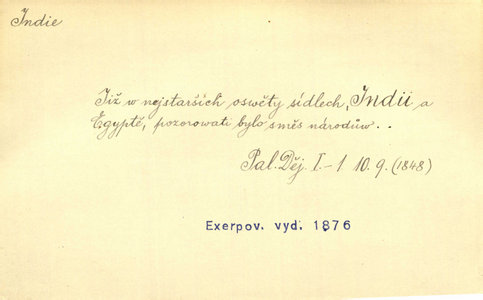 Indie
Již w nejstarších oswěty sídlech, Indii a
Egyptě, pozorowati bylo směs národůw..
Pal. Děj. I.-1 10.9. (1848)
Exerpov. vyd. 1876